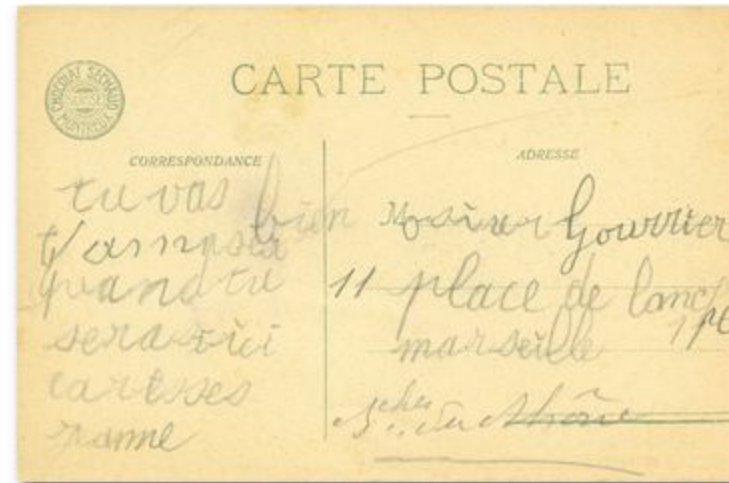 CHOCOLAT SÉCHAUD
MONTREUX
CARTE POSTALE
CORRESPONDANCE
tu vas bien
t'amuser
quand tu
seras ici
caresses
ADRESSE
Gourrier
11 place de
marseille
Bches du Rhône